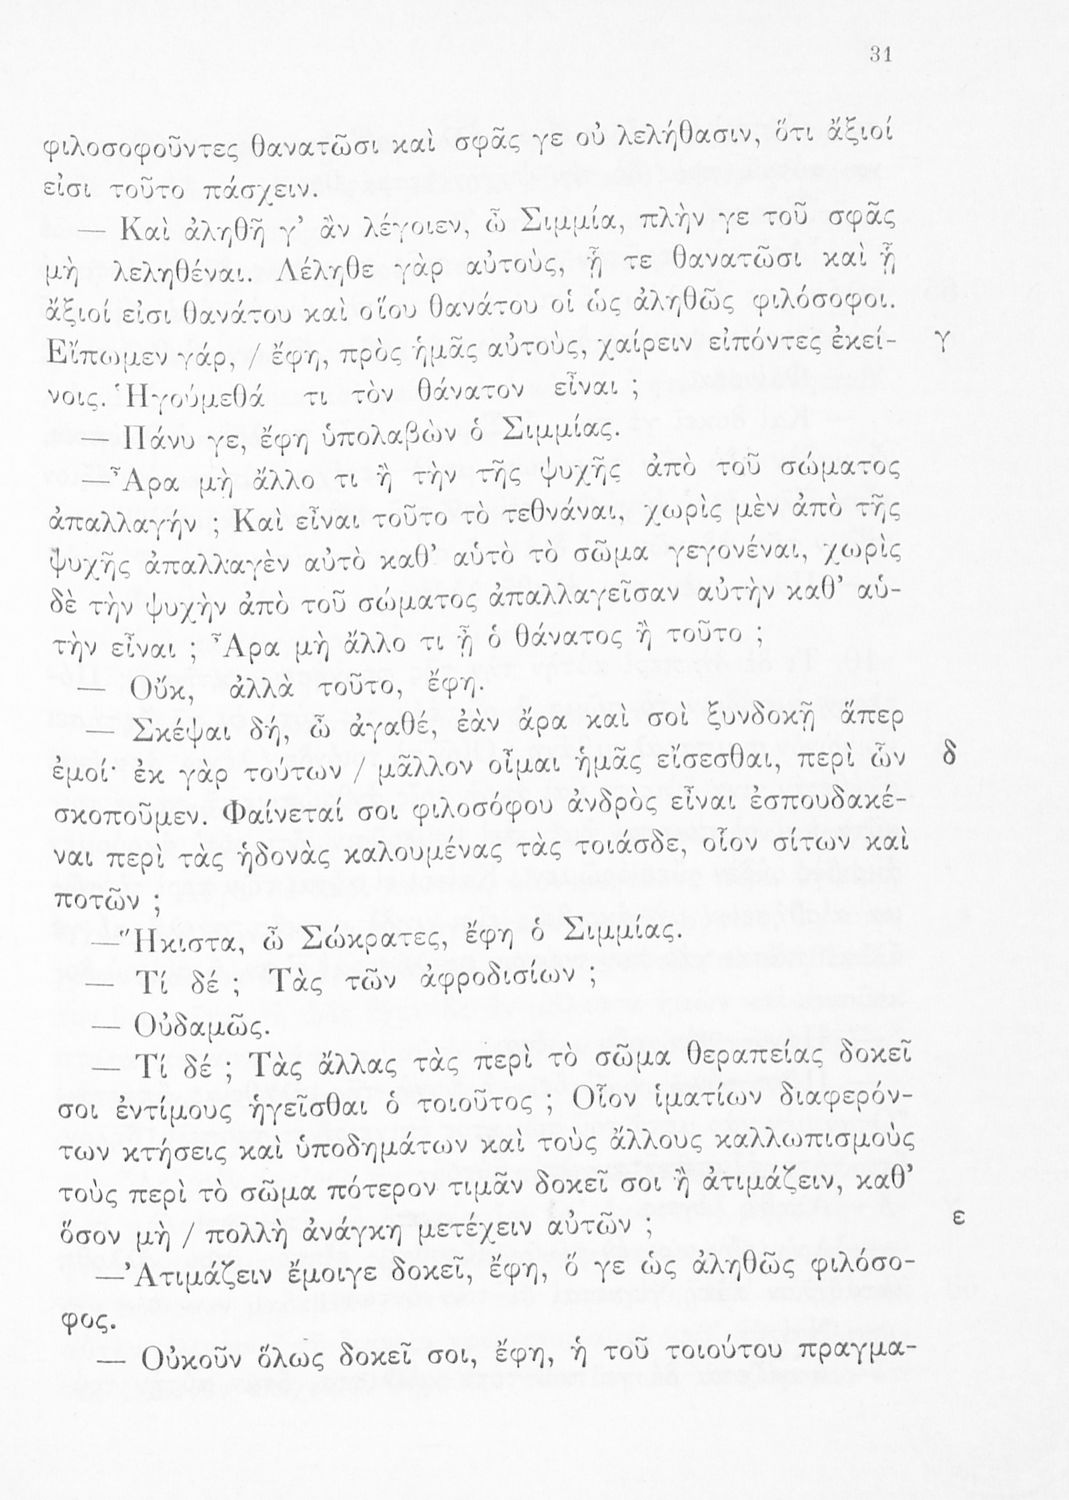 31
φιλοσοφοῦντες θανατῶσι καὶ σφᾶς γε οὐ λελήθασιν, ὅτι ἄξιοί
εἰσι τοῦτο πάσχειν.
— Καὶ ἀληθῆ γ’ ἂν λέγοιεν, ὦ Σιμμία, πλὴν γε τοῦ σφᾶς
μὴ λεληθέναι. Λέληθε γὰρ αὐτοὺς, ᾗ τε θανατῶσι καὶ ᾗ
ἄξιοί εἰσι θανάτου καὶ οἵου θανάτου οἱ ὡς ἀληθῶς φιλόσοφοι.
Εἴπωμεν γάρ, / ἔφη, πρὸς ἡμᾶς αὐτοὺς, χαίρειν εἰπόντες ἐκεί- γ
νοις. Ἡγούμεθά τι τὸν θάνατον εἶναι ;
— Πάνυ γε, ἔφη ὑπολαβὼν ὁ Σιμμίας.
—Ἆρα μὴ ἄλλο τι ἢ τὴν τῆς ψυχῆς ἀπὸ τοῦ σώματος
ἀπαλλαγήν ; Καὶ εἶναι τοῦτο τὸ τεθνάναι, χωρὶς μὲν ἀπὸ τῆς
ψυχῆς ἀπαλλαγὲν αὐτὸ καθ’ αὑτὸ τὸ σῶμα γεγονέναι, χωρὶς
δὲ τὴν ψυχὴν ἀπὸ τοῦ σώματος ἀπαλλαγεῖσαν αὐτὴν καθ’ αὑ-
τὴν εἶναι ; Ἆρα μὴ ἄλλο τι ᾖ ὁ θάνατος ἢ τοῦτο ;
— Οὔκ, ἀλλὰ τοῦτο, ἔφη.
— Σκέψαι δή, ὦ ἀγαθέ, ἐὰν ἄρα καὶ σοὶ ξυνδοκῇ ἅπερ
ἐμοί· ἐκ γὰρ τούτων / μᾶλλον οἶμαι ἡμᾶς εἴσεσθαι, περὶ ὧν δ
σκοποῦμεν. Φαίνεταί σοι φιλοσόφου ἀνδρὸς εἶναι ἐσπουδακέ-
ναι περὶ τὰς ἡδονὰς καλουμένας τὰς τοιάσδε, οἷον σίτων καὶ
ποτῶν ;
—Ἥκιστα, ὦ Σώκρατες, ἔφη ὁ Σιμμίας.
— Τί δέ ; Τὰς τῶν ἀφροδισίων ;
— Οὐδαμῶς.
— Τί δέ ; Τὰς ἄλλας τὰς περὶ τὸ σῶμα θεραπείας δοκεῖ
σοι ἐντίμους ἡγεῖσθαι ὁ τοιοῦτος ; Οἷον ἱματίων διαφερόν-
των κτήσεις καὶ ὑποδημάτων καὶ τοὺς ἄλλους καλλωπισμοὺς
τοὺς περὶ τὸ σῶμα πότερον τιμᾶν δοκεῖ σοι ἢ ἀτιμάζειν, καθ’
ὅσον μὴ / πολλὴ ἀνάγκη μετέχειν αὐτῶν ; ε
—Ἀτιμάζειν ἔμοιγε δοκεῖ, ἔφη, ὅ γε ὡς ἀληθῶς φιλόσο-
φος.
— Οὐκοῦν ὅλως δοκεῖ σοι, ἔφη, ἡ τοῦ τοιούτου πραγμα-